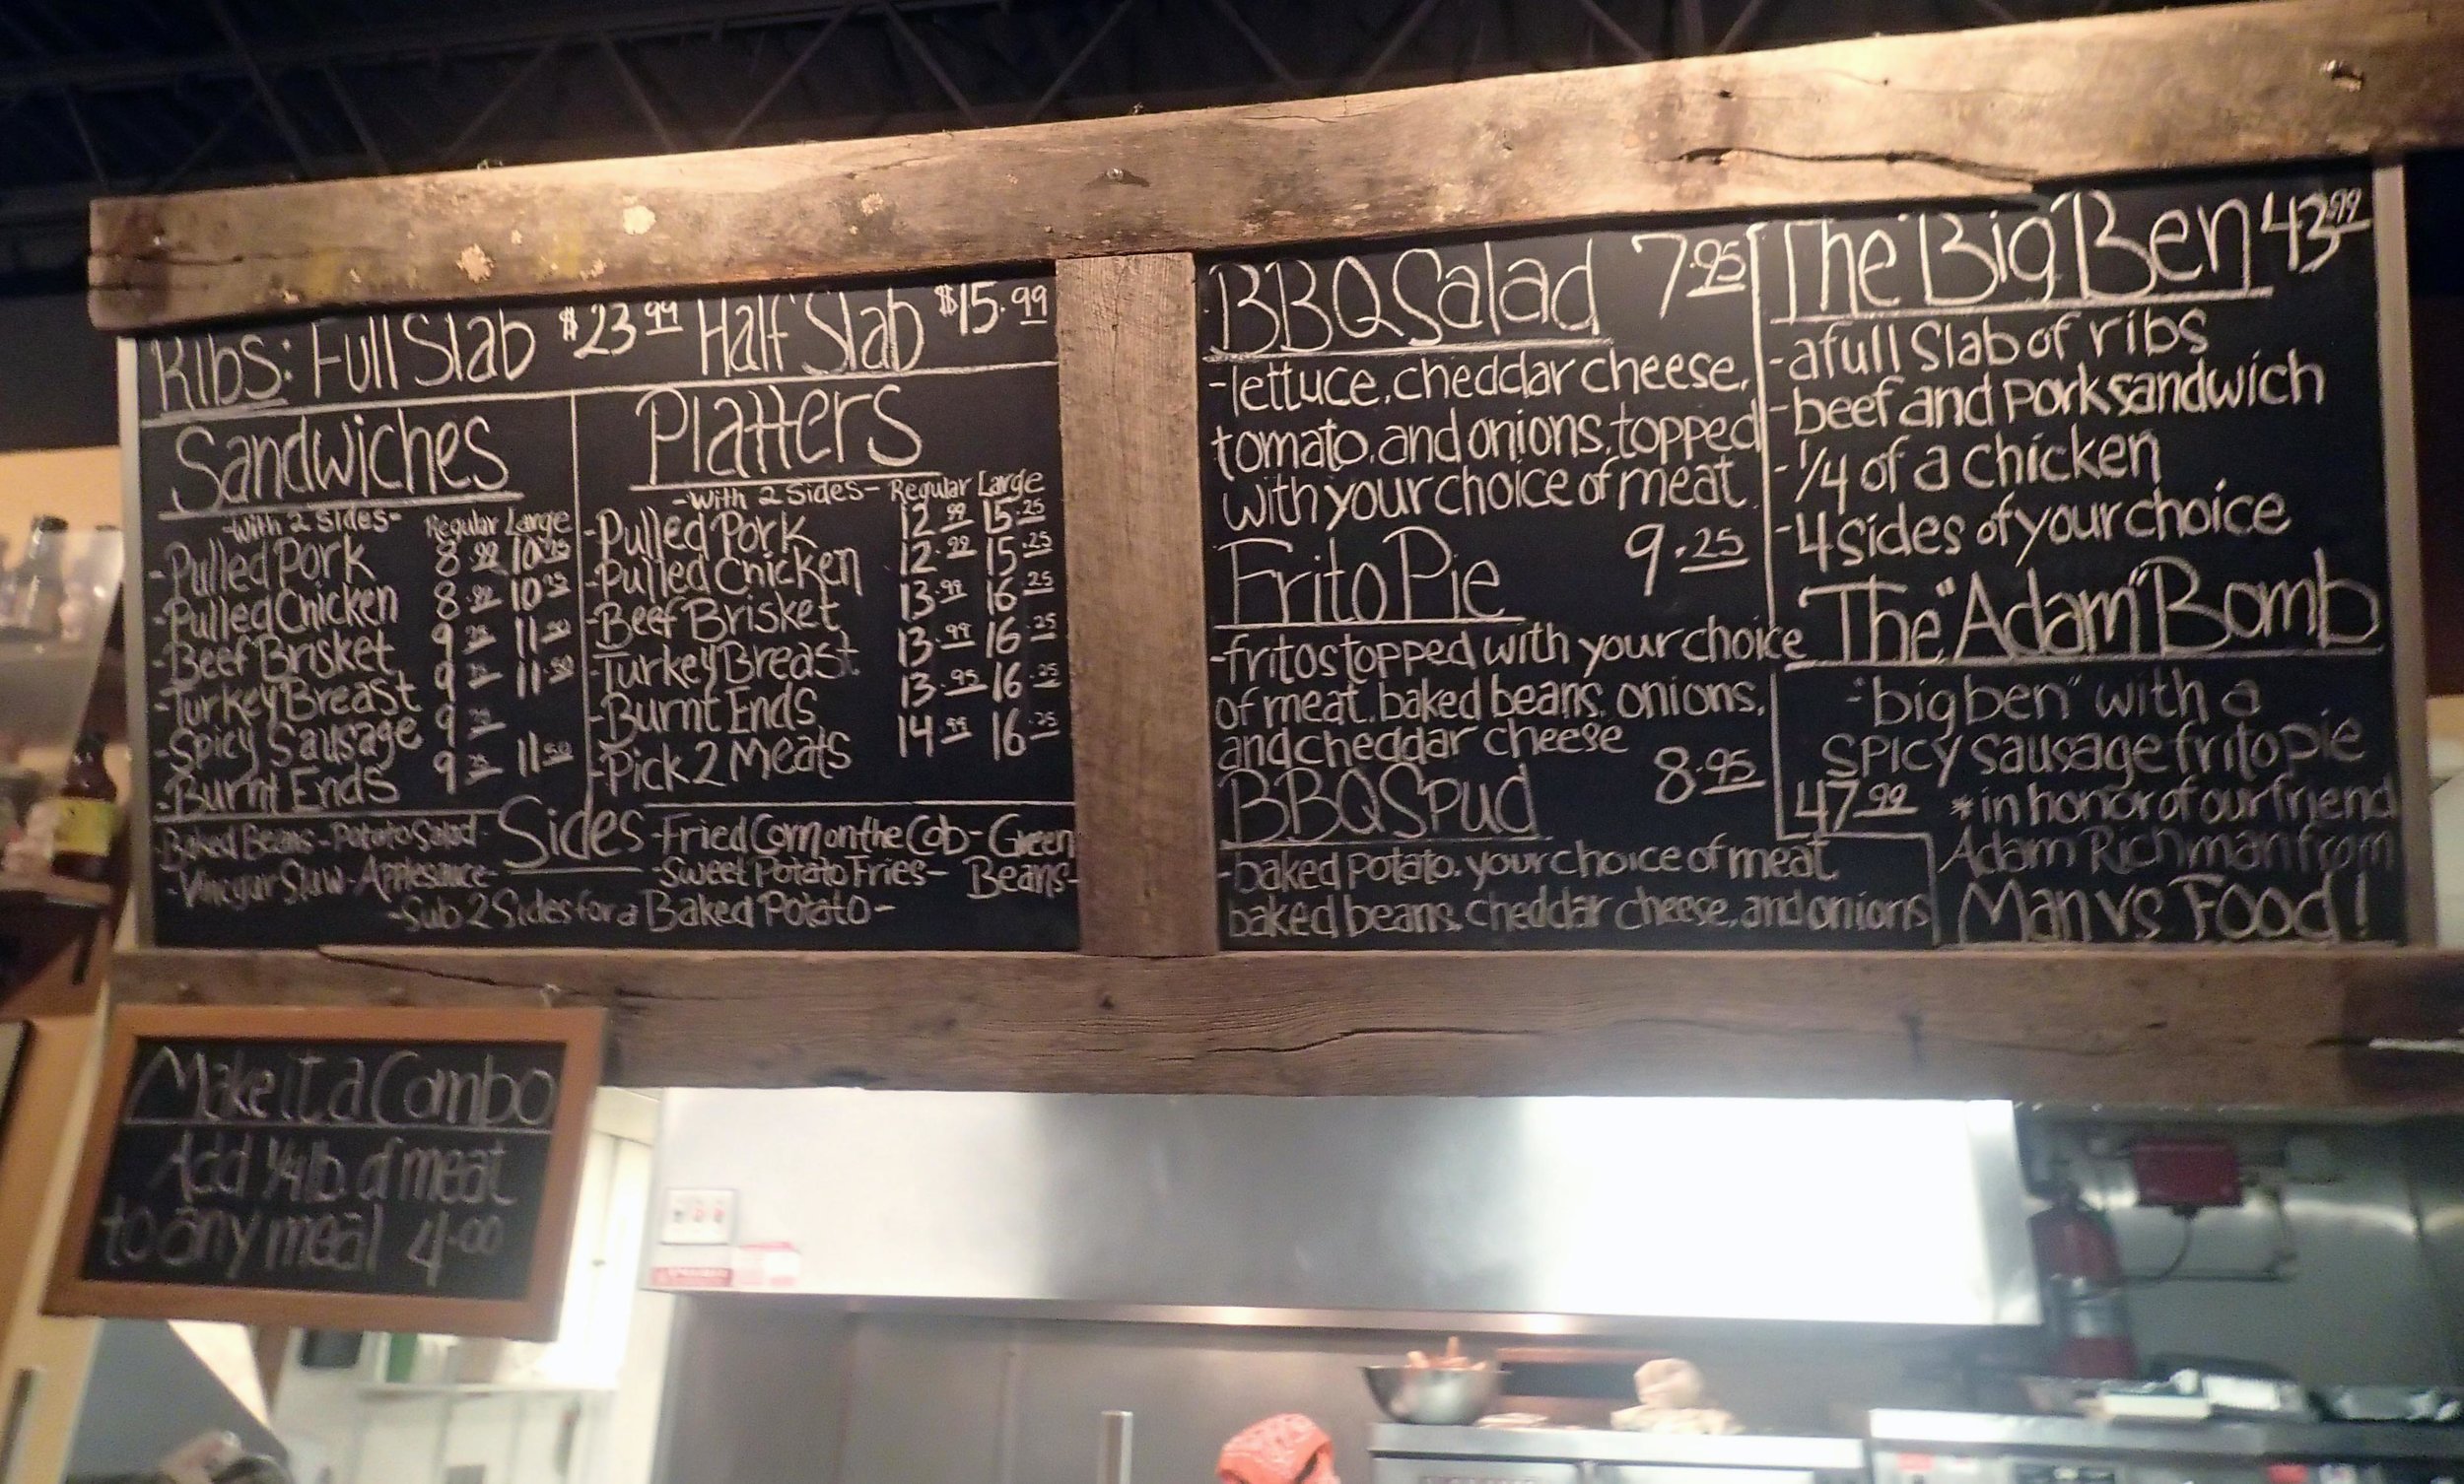 Ribs: Full Slab $23.99 Half Slab $15.99
Sandwiches
-with 2 sides- Regular Large
-Pulled Pork 8.99 10.25
-Pulled Chicken 8.99 10.25
-Beef Brisket 9.25 11.50
-Turkey Breast 9.25 11.50
-Spicy Sausage 9.25
-Burnt Ends 9.25 11.50
Platters
-with 2 sides- Regular Large
-Pulled Pork 12.99 15.25
-Pulled Chicken 12.99 15.25
-Beef Brisket 13.99 16.25
-Turkey Breast 13.99 16.25
-Burnt Ends 13.95 16.25
-Pick 2 Meats 14.99 16.25
Sides
-Baked Beans-Potato Salad-
-Vinegar Slaw-Applesauce-
-Fried Corn on the Cob-Green Beans-
-Sweet Potato Fries-
-Sub 2 Sides for a Baked Potato-
BBQ Salad 7.95
-lettuce, cheddar cheese,
tomato, and onions, topped
with your choice of meat.
Frito Pie 9.25
-fritos topped with your choice
of meat, baked beans, onions,
and cheddar cheese
BBQ Spud 8.95
-baked potato, your choice of meat,
baked beans, cheddar cheese, and onions
The "Big Ben" 43.99
-a full slab of ribs
-beef and pork sandwich
-1/4 of a chicken
-4 sides of your choice
The "Adam" Bomb
-"big ben" with a
spicy sausage frito pie
47.99 *in honor of our friend
Adam Richman from
Man vs Food!
Make it a Combo
Add 1/4 lb. of meat
to any meal 4.00